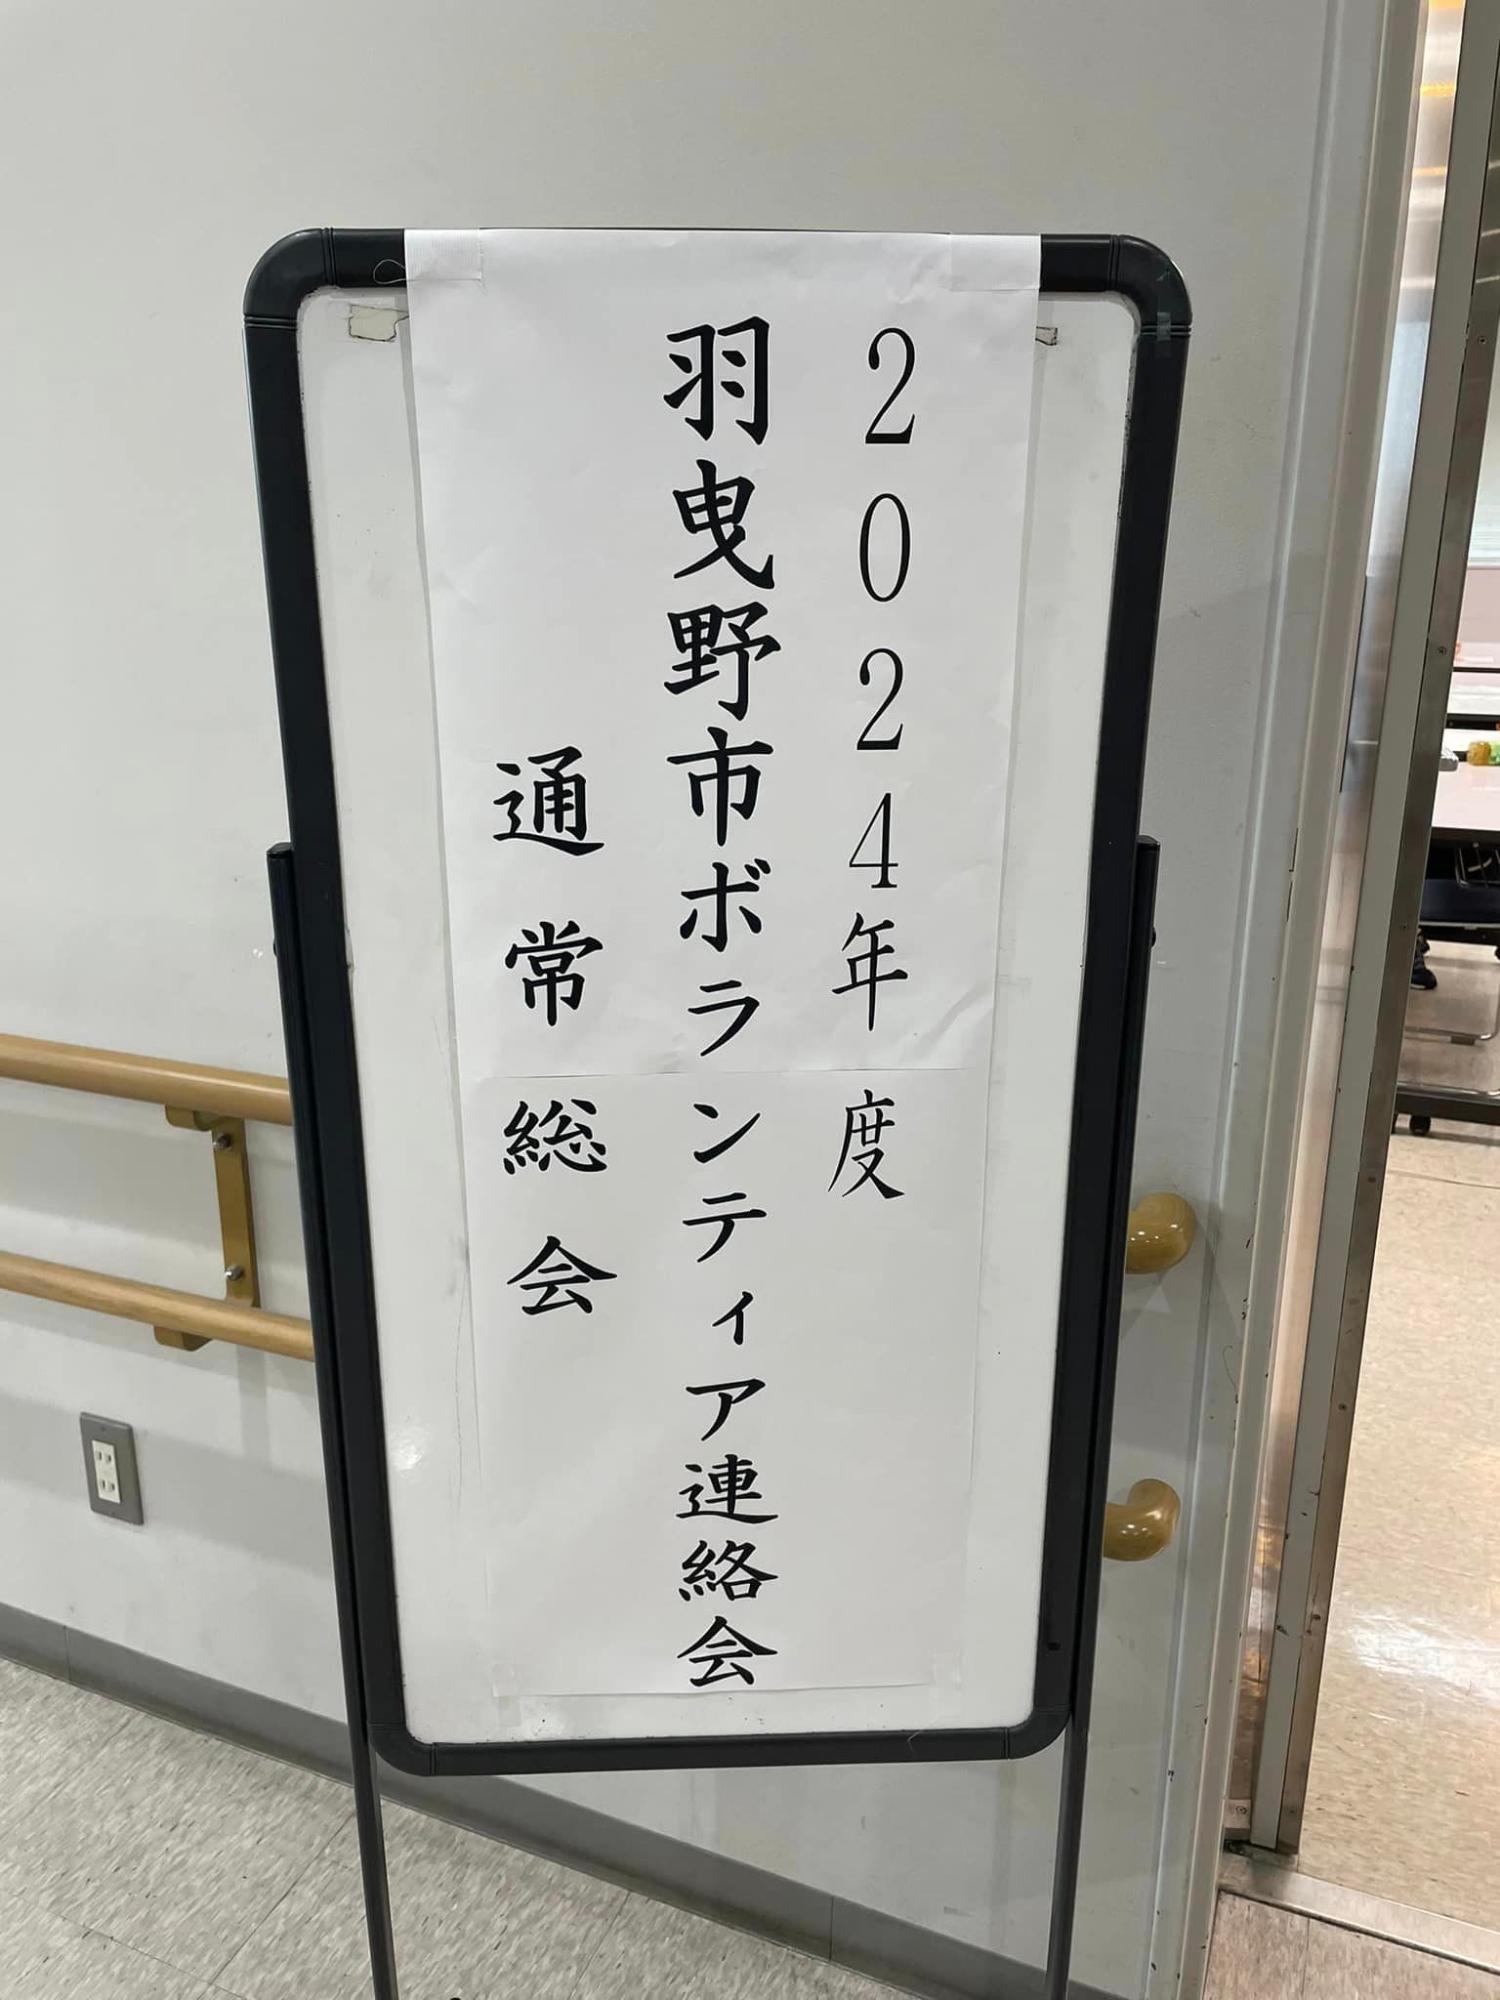 2024年度
羽曳野市ボランティア連絡会
通常総会